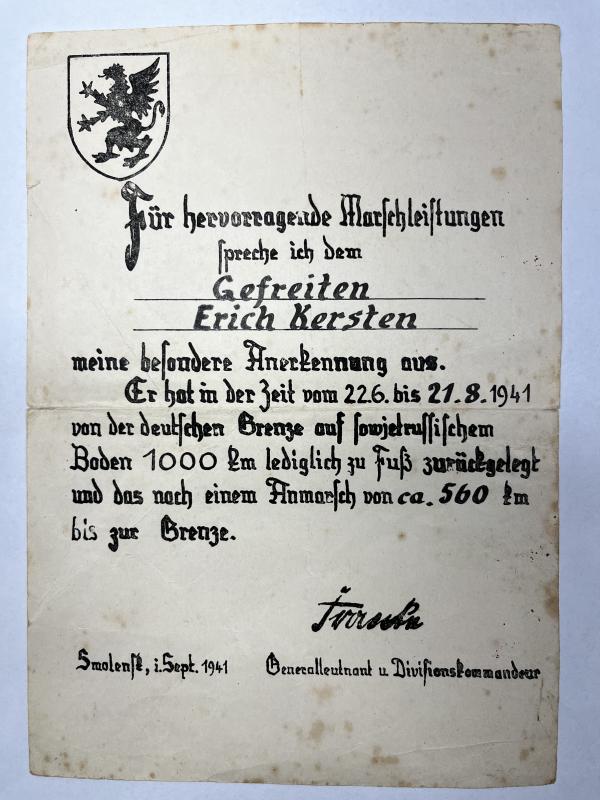 Für hervorragende Marschleistungen
spreche ich dem
Gefreiten
Erich Kersten
meine besondere Anerkennung aus.
Er hat in der Zeit vom 22.6. bis 21.8.1941
von der deutschen Grenze auf sowjetrussischem
Boden 1000 km lediglich zu Fuß zurückgelegt
und das nach einem Anmarsch von ca. 560 km
bis zur Grenze.
Smolensk, i. Sept. 1941 Generalleutnant u Divisionskommandeur